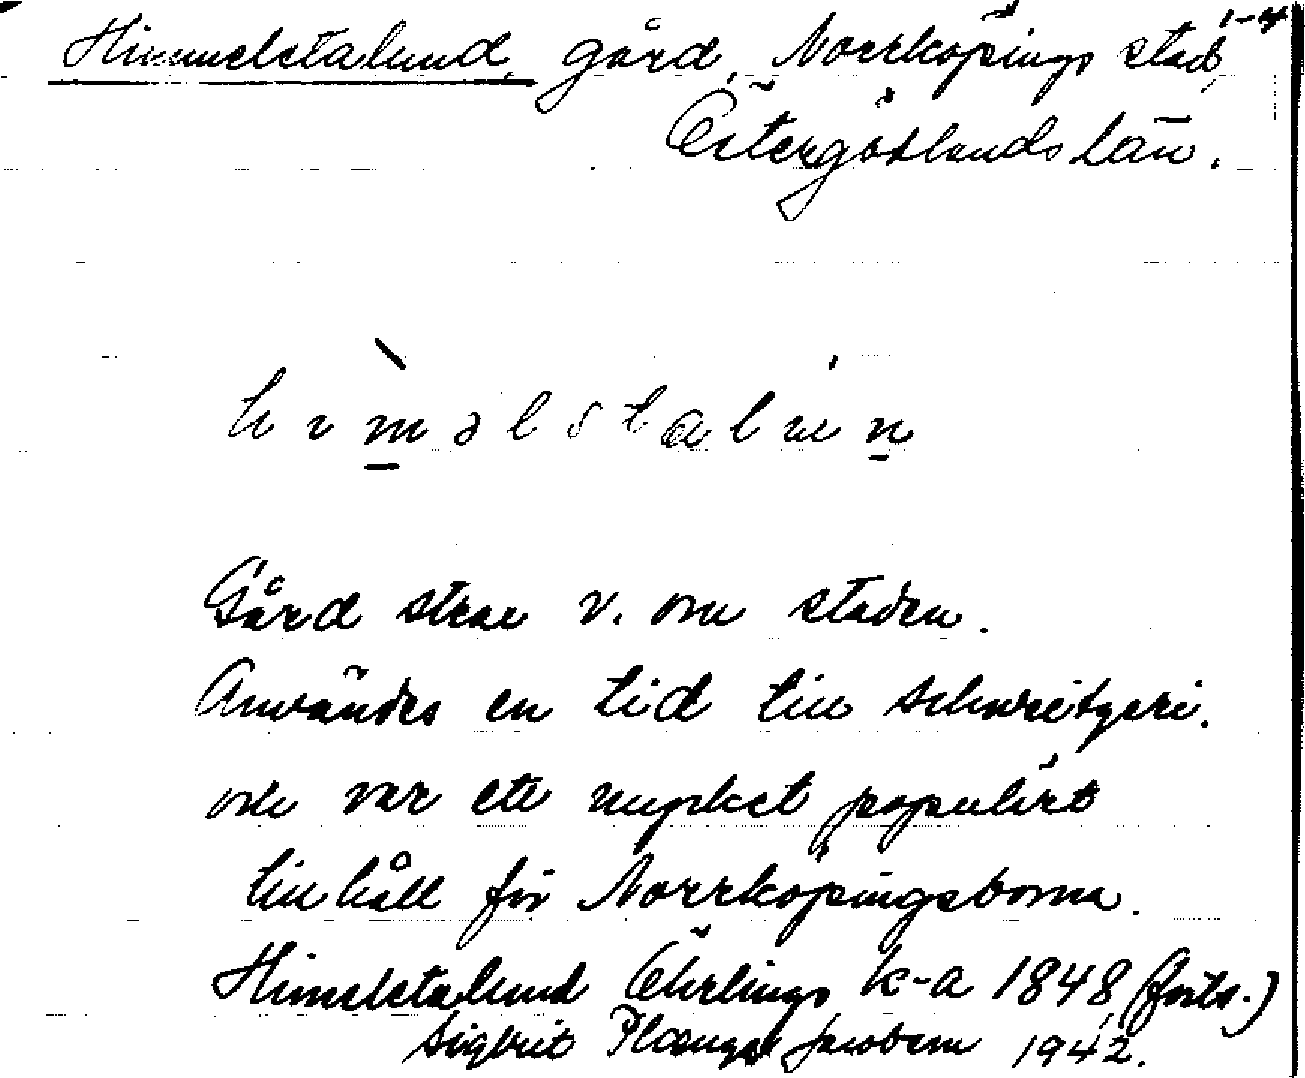 Himmelstalund, gård, Norrköpings stad, 1-4
Östergötlands län.
hɩməlstalɯn
Gård strax v. om staden.
Användes en tid till schweitzeri.
och var ett mycket populärt
tillhåll för Norrköpingsborna.
Himelstalund Öhrlings k-a 1848, (forts.)
Sigbrit Plænge Jacobson 1942.